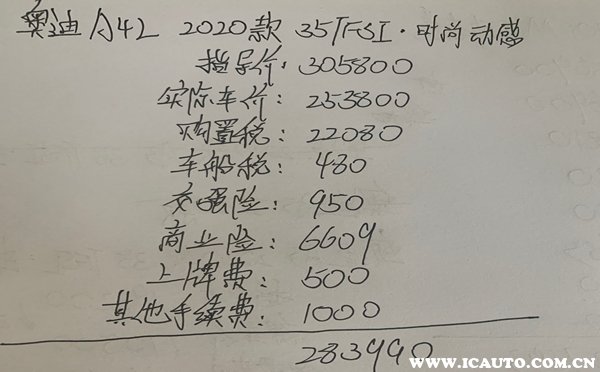 奥迪A4L 2020款 35TFSI·时尚动感
指导价: 305800
实际车价: 253800
购置税: 22080
车船税: 480
交强险: 950
商业险: 6609
上牌费: 500
其他手续费: 1000
283990
www.icauto.com.cn